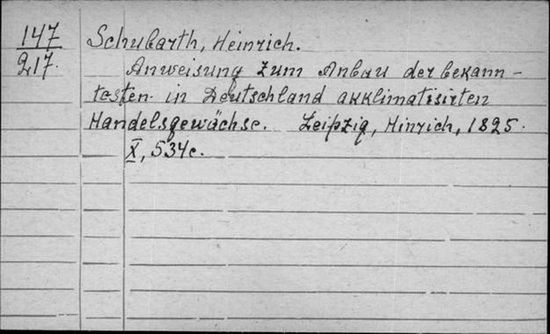 147
217.
Schubarth, Heinrich.
Anweisung zum Anbau der bekann-
testen in Deutschland akklimatisirten
Handelsgewächse. Leipzig, Hinrich, 1825.
X, 534c.